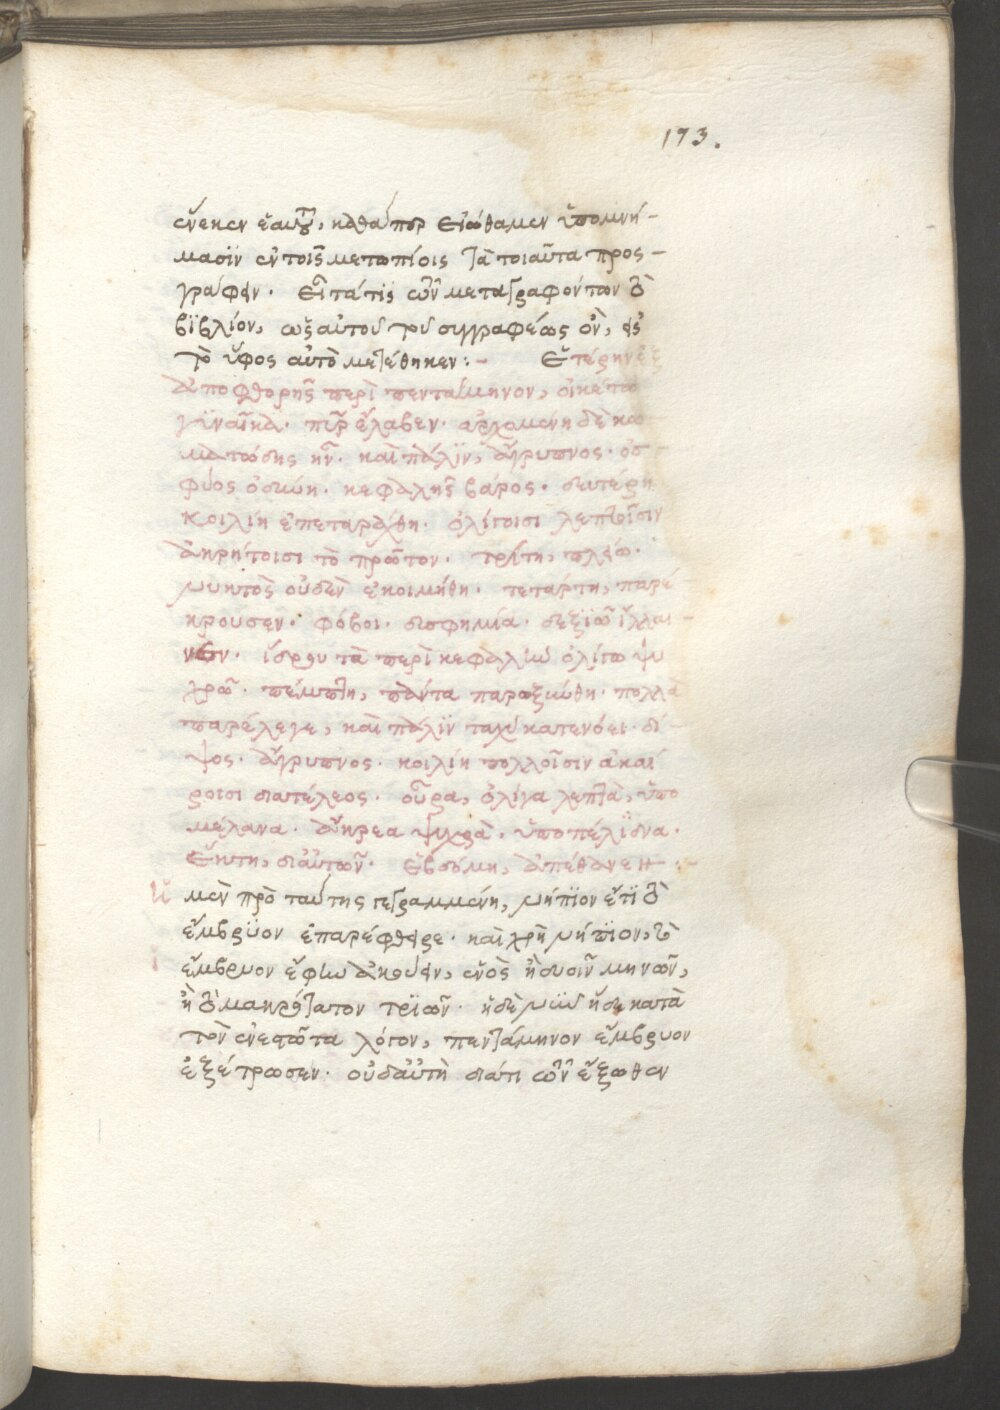 173.
ἕνεκεν ἑαυτοῦ, καθάπερ εἰώθαμεν ὑπομνή-
μασϊν ἐν τοῖς μετωπίοις τὰ τοιαῦτα προς-
γράφειν. εἶτά τις τῶν μεταγραφόντων τὸ
βϊβλίον, ὡς αὐτοῦ τοῦ συγγραφέως ὂν, εἰς
τὸ ὕφος αὐτὸ μετέθηκεν:- Ἑτέρην ἐξ
ἀποφθορῆς περὶ πεντάμηνον, οἰκέτεω
γϋναῖκα. πῦρ ἔλαβεν. ἀρχομένη δὲ κω
ματώδης ἦν. καὶ πάλϊν, ἄγρυπνος. ὀσ
φύος ὀδύνη. κεφαλῆς βάρος. δευτέρη
κοιλίη ἐπεταράχθη. ὀλίγοισι λεπτοῖσιν
ἀκρήτοισι τὸ πρῶτον. τρίτη, πλείω.
νυκτὸς οὐδὲν ἐκοιμήθη. τετάρτη, παρέ
κρουσεν. φόβοι. δυσφημία. δεξϊῶ ἴλλαι-
νεν. ἵδρου τὰ περὶ κεφαλὴν ὀλίγω ψυ
χρῶ. πέμπτη, πάντα παρωξύνθη. πολλὰ
παρέλεγε, καὶ πάλϊν ταχὺ κατενόει. δί-
ψος. ἄγρυπνος. κοιλίη πολλοῖσιν ἀκαί
ροισι διατέλεος. οὖρα, ὀλίγα λεπτὰ, ὑπο
μέλανα. ἄκρεα ψυχρὰ, ὑποπέλϊδνα.
Ἕκτη, διαὐτῶν. Ἑβδόμη, ἀπέθανεν :-
Ἡ μὲν πρὸ ταύτης γεγραμμένη, νήπϊον ἔτϊ τὸ
ἔμβρϋον ἐπαρέφθειρε. καὶ χρὴ νήπϊον, τὸ
ἔμβρυον ἔφην ἀκούειν, ἑνὸς ἢ δυοῖν μηνῶν,
ἢ τὸ μακρότατον τρϊῶν. ἡ δὲ νῦν ἥδε κατὰ
τὸν ἐνεστῶτα λόγον, πεντάμηνον ἔμβρυον
ἐξέτρωσεν. οὐδ' αὐτὴ διά τι τῶν ἔξωθεν